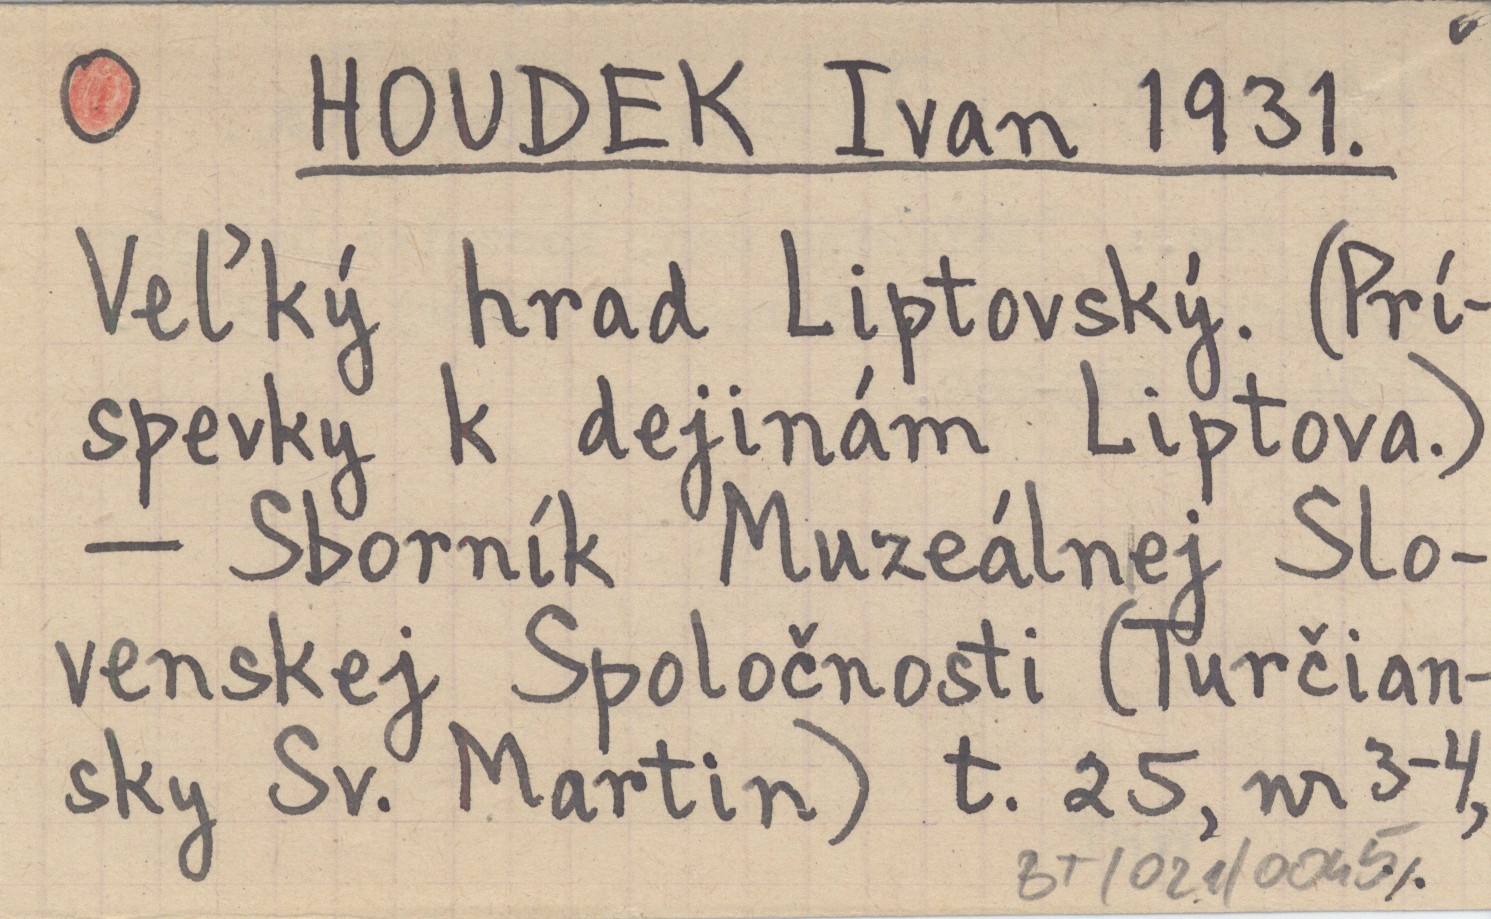 HOUDEK Ivan 1931.
Veľký hrad Liptovský. (Prí-
spevky k dejinám Liptova.)
— Sborník Muzeálnej Slo-
venskej Spoločnosti (Turčian-
sky Sv. Martin) t. 25, nr 3-4,
BT/021/0045/.